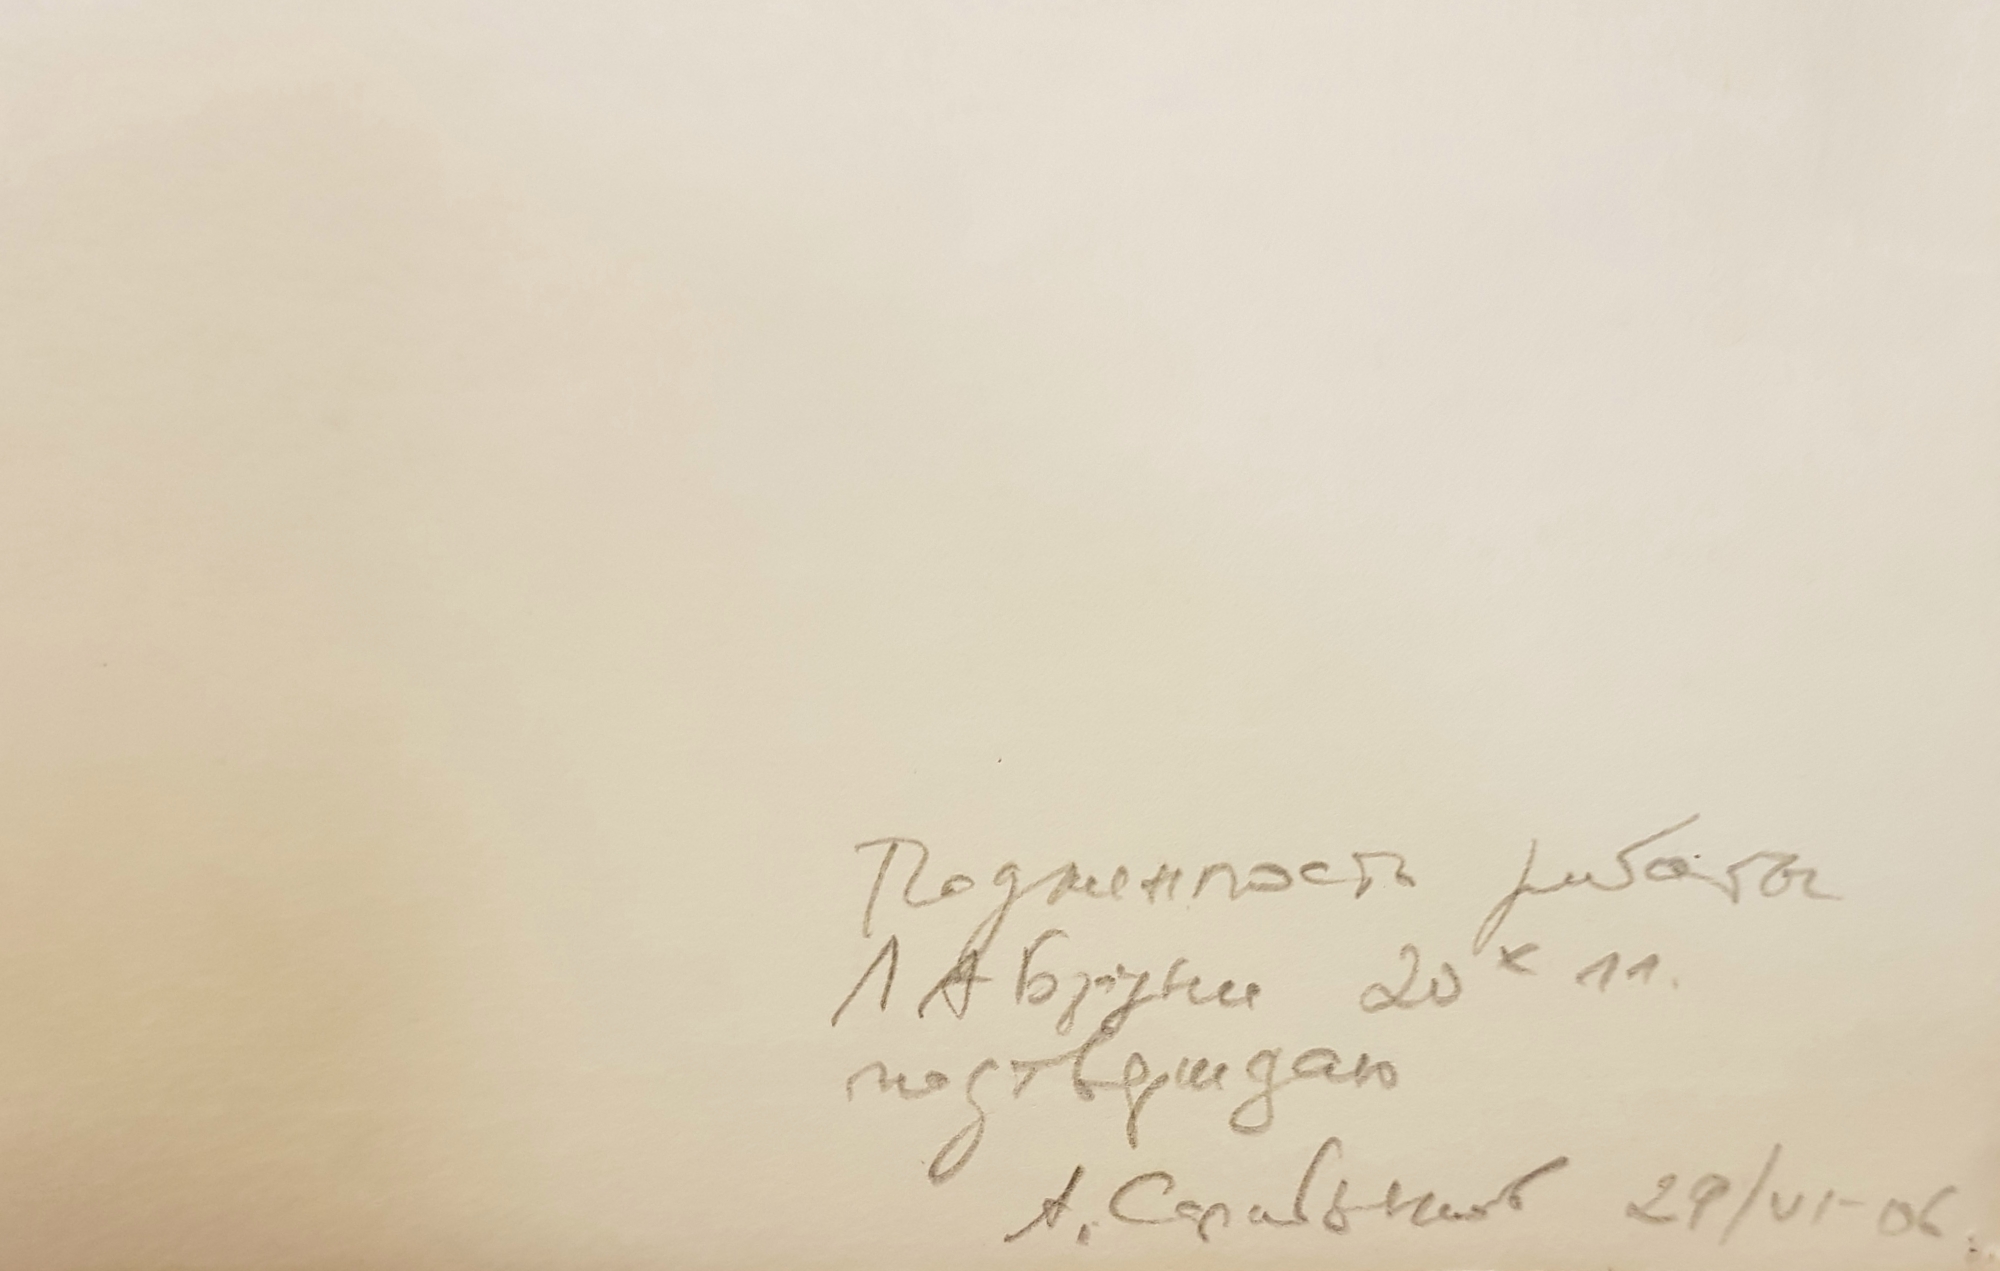 Подлинность работы
Л А Бруни 20х 11.
подтверждаю
А. Сарабьянов 29/VI-06.